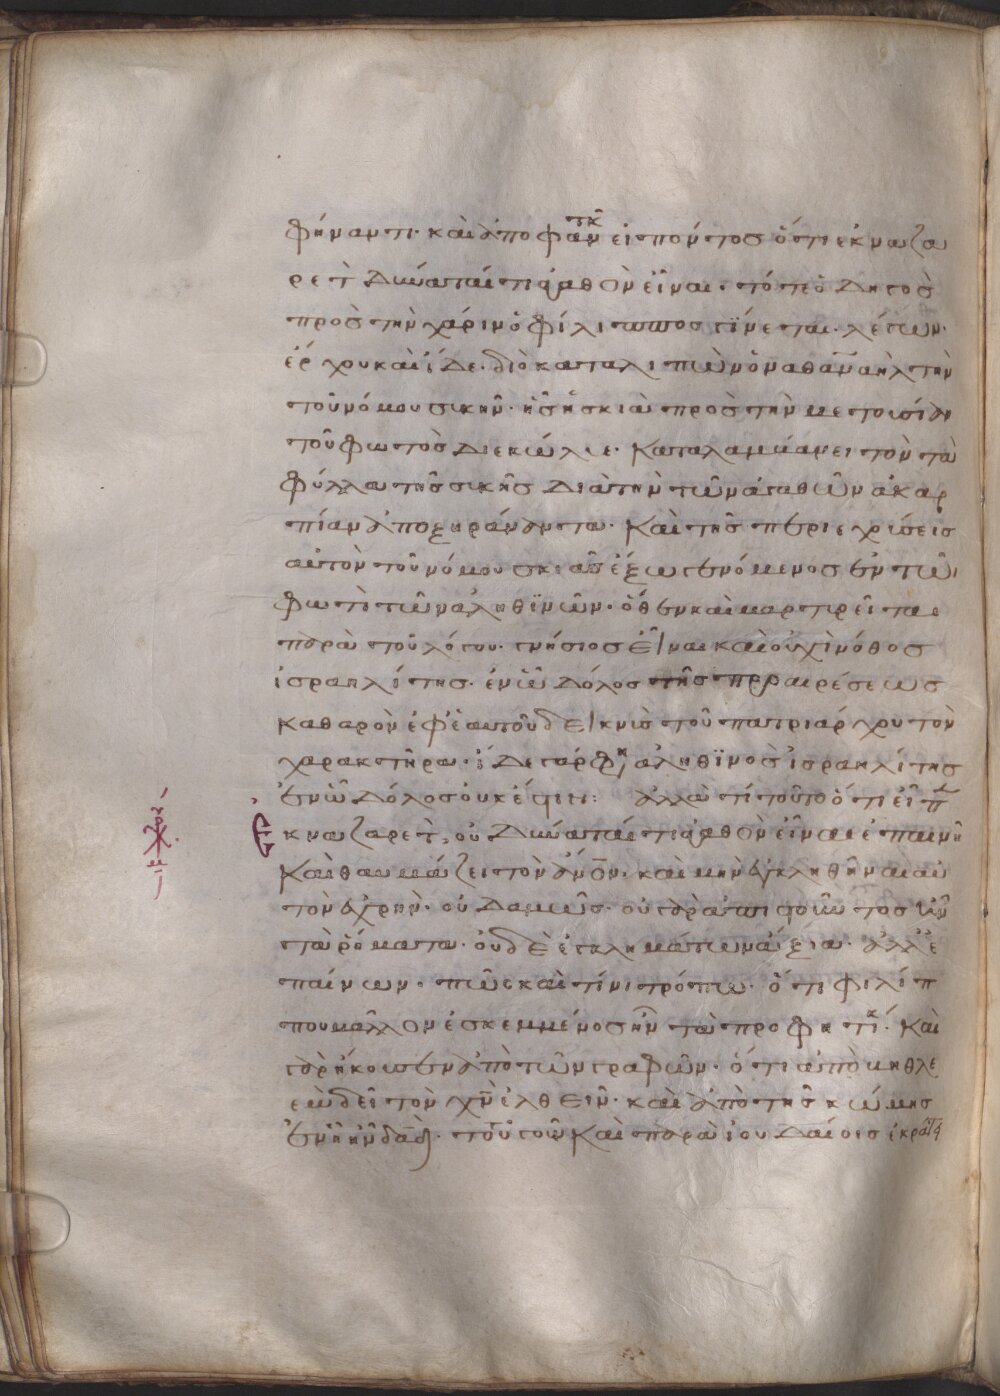 φήναντι· καὶ ἀποφαντικῶς εἰπόντος ὅτι ἐκ ναζα
ρὲτ δύναταί τι ἀγαθὸν εἶναι· τότε ὁ δητος
προς τὴν χάριν ὁ φίλιππος γίνεται λέγων·
ἔρχου καὶ ἴδε· διὸ καταλιπὼν ὁ ναθαναὴλ τὴν
τοῦ νόμου συκῆν· ἧς ἡ σκιὰ πρὸς τὴν μετουσίαν
τοῦ φωτὸς διεκώλυε· καταλαμβάνει τὸν τὰ
φύλλα τῆς συκῆς διὰ τὴν τῶν ἀγαθῶν ἀκαρ
πίαν ἀποξηράναντα· καὶ τῆς περιεχούσεις
αὐτὸν τοῦ νόμου σκιᾶς ἔξω γενόμενος ἐν τῶ
φωτὶ τῶν ἀληθϊνῶν· ὅθεν καὶ μαρτυρεῖται
παρὰ τοῦ λόγου· γνήσιος εἶναι καὶ οὐχὶ νόθος
ἰσραηλίτης· ἐν ᾧ δόλος τῆς προαιρέσεως
καθαρὸν ἐφ' ἑαυτοῦ δεικνὺς τοῦ πατριάρχου τὸν
χαρακτῆρα· ἴδε γάρ φη ἀληθϊνὸς ἰσραηλίτης
ἐν ᾧ δόλος οὐκ ἔστι: ἀλλὰ τί τοῦτο ὅτι εἰπ
ἐκ ναζαρὲτ, οὐ δύναταί τι ἀγαθὸν εἶναι ἐπαινεῖ
καὶ θαυμάζει τὸν ἀνον· καὶ μὴν ἐγκληθῆναι αὐ
τὸν ἐχρῆν· οὐδαμῶς· οὐ γὰρ ἀπιστοῦντος ἦν
τὰ ῥήματα· οὐδὲ ἐγκλημάτων ἄξια· ἀλλ' ἐ
παίνων· πῶς καὶ τίνι τρόπω· ὅτι φιλίπ
που μᾶλλον ἐσκεμμένος ἦν τὰ προφητικά· καὶ
γὰρ ἤκουσεν ἀπὸ τῶν γραφῶν· ὅτι ἀπὸ βηθλε
ὲμ δεῖ τὸν χν ἐλθεῖν· καὶ ἀπὸ τῆς κώμης
ἐν ᾗ ἦν δαδ· τοῦτο γοῦν καὶ παρὰ ἰουδαίοις ἐκράτει